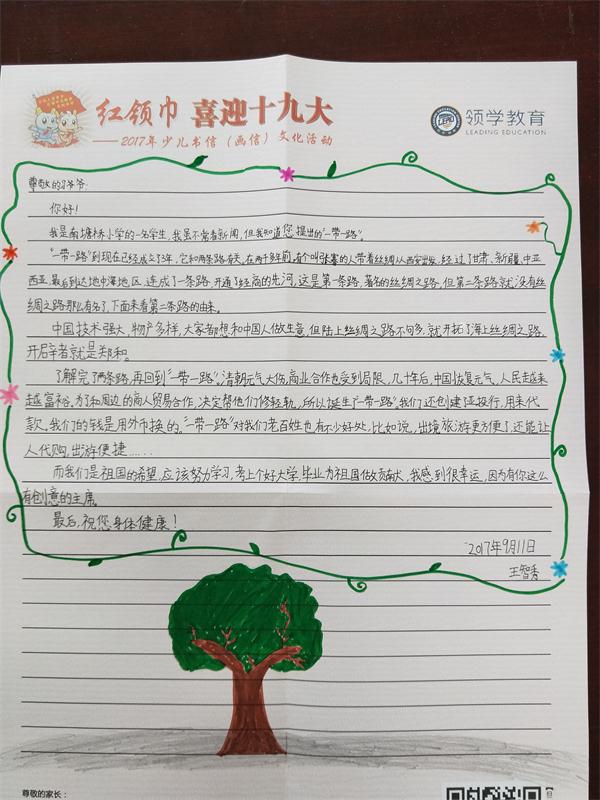 红领巾 喜迎十九大
——2017年少儿书信（画信）文化活动
领学教育
LEADING EDUCATION
尊敬的习爷爷:
你好!
我是南塘桥小学的一名学生,我虽不常看新闻,但我知道您提出的“一带一路”。
“一带一路”到现在已经成立了3年,它和两条路有关,在两千多年前,有个叫张骞的人带着丝绸从西安出发,经过了甘肃、新疆、中亚
西亚,最后到达地中海地区,连成了一条路,开通了经商的先河,这是第一条路,著名的丝绸之路,但第二条路就没有丝
绸之路那么有名了,下面来看第二条路的由来。
中国技术强大,物产多样,大家都想和中国人做生意,但陆上丝绸之路不句多,就开拓了海上丝绸之路,
开辟者就是郑和。
了解完了两条路,再回到“一带一路”,清朝元气大伤,商业合作也受到局限,几十年后,中国恢复元气,人民越来
越富裕,为了和周边的商人贸易合作,决定帮他们修轻轨,所以诞生了“一带一路”,我们还创建亚投行,用来代
款,我们的钱是用外币换的。“一带一路”对我们老百姓也有不少好处,比如说,出境旅游更方便了,还能让
人代购,出游便捷……
而我们是祖国的希望,应该努力学习,考上个好大学,毕业为祖国做贡献,我感到很幸运,因为有你这么
有创意的主席。
最后,祝您身体健康!
2017年9月11日
王智秀
尊敬的家长: